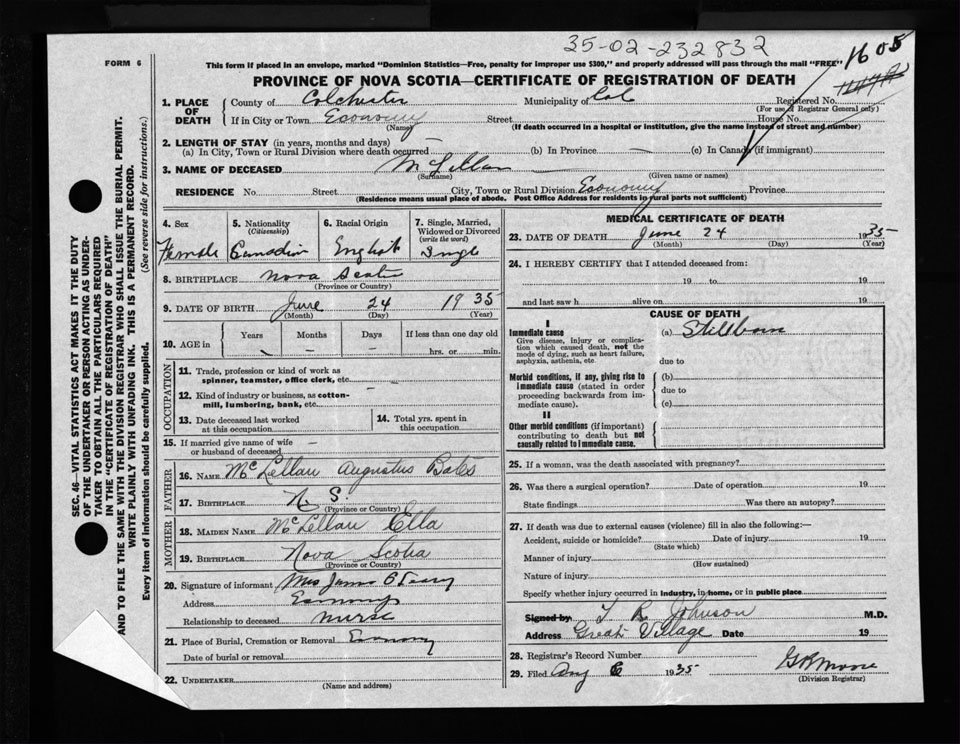 35-02-232832
1605
FORM 6
This form if placed in an envelope, marked "Dominion Statistics—Free, penalty for improper use $300," and properly addressed will pass through the mail "FREE"
PROVINCE OF NOVA SCOTIA—CERTIFICATE OF REGISTRATION OF DEATH
1. PLACE OF DEATH
County of Colchester Municipality of Col Registered No.
(For use of Registrar General only)
If in City or Town Economy Street House No.
(Name) (If death occurred in a hospital or institution, give the name instead of street and number)
2. LENGTH OF STAY (in years, months and days)
(a) In City, Town or Rural Division where death occurred — (b) In Province — (c) In Canada (if immigrant)
3. NAME OF DECEASED McLellan —
(Surname) (Given name or names)
RESIDENCE No. Street City, Town or Rural Division Economy Province
(Residence means usual place of abode. Post Office Address for residents in rural parts not sufficient)
4. Sex
Female
5. Nationality
(Citizenship)
Canadian
6. Racial Origin
English
7. Single, Married, Widowed or Divorced
(write the word)
Single
8. BIRTHPLACE Nova Scotia
(Province or Country)
9. DATE OF BIRTH June 24 1935
(Month) (Day) (Year)
10. AGE in
Years Months Days If less than one day old
hrs. or min.
OCCUPATION
11. Trade, profession or kind of work as
spinner, teamster, office clerk, etc.
12. Kind of industry or business, as cotton-
mill, lumbering, bank, etc.
13. Date deceased last worked
at this occupation
14. Total yrs. spent in
this occupation
15. If married give name of wife
or husband of deceased —
FATHER
16. NAME McLellan Augustus Bates
17. BIRTHPLACE N. S.
(Province or Country)
MOTHER
18. MAIDEN NAME McLellan Ella
19. BIRTHPLACE Nova Scotia
(Province or Country)
20. Signature of informant Mrs James O'Leary
Address Economy
Relationship to deceased nurse
21. Place of Burial, Cremation or Removal Economy
Date of burial or removal
22. UNDERTAKER
(Name and address)
MEDICAL CERTIFICATE OF DEATH
23. DATE OF DEATH June 24 1935
(Month) (Day) (Year)
24. I HEREBY CERTIFY that I attended deceased from:
19 to 19
and last saw h alive on 19
CAUSE OF DEATH
I
Immediate cause
Give disease, injury or complica-
tion which caused death, not the
mode of dying, such as heart failure,
asphyxia, asthenia, etc.
(a) Stillborn
due to
Morbid conditions, if any, giving rise to
immediate cause (stated in order
proceeding backwards from im-
mediate cause).
(b)
due to
(c)
II
Other morbid conditions (if important)
contributing to death but not
causally related to immediate cause.
25. If a woman, was the death associated with pregnancy?
26. Was there a surgical operation? Date of operation 19
State findings Was there an autopsy?
27. If death was due to external causes (violence) fill in also the following:—
Accident, suicide or homicide? Date of injury 19
(State which)
Manner of injury
(How sustained)
Nature of injury
Specify whether injury occurred in industry, in home, or in public place
Signed by T R Johnson M.D.
Address Great Village Date 19
28. Registrar's Record Number
29. Filed Aug 6 1935 G R Moore
(Division Registrar)
SEC. 46—VITAL STATISTICS ACT MAKES IT THE DUTY
OF THE UNDERTAKER OR PERSON ACTING AS UNDER-
TAKER TO OBTAIN ALL THE PARTICULARS REQUIRED
IN THE "CERTIFICATE OF REGISTRATION OF DEATH"
AND TO FILE THE SAME WITH THE DIVISION REGISTRAR WHO SHALL ISSUE THE BURIAL PERMIT.
WRITE PLAINLY WITH UNFADING INK. THIS IS A PERMANENT RECORD.
Every item of information should be carefully supplied. (See reverse side for instructions.)